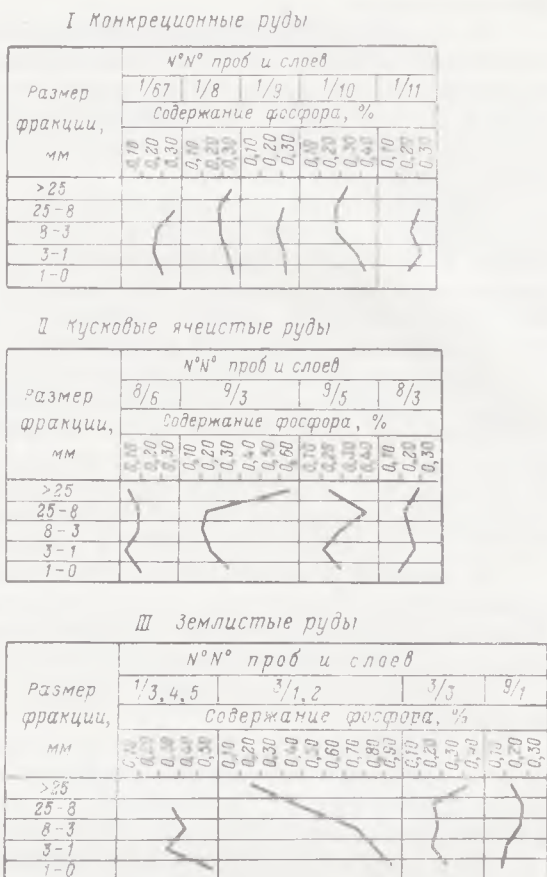 I Конкреционные руды
N°N° проб и слоев
Размер фракции, мм
1/67 1/8 1/9 1/10 1/11
Содержание фосфора, %
0,10 0,20 0,30 0,10 0,20 0,30 0,10 0,20 0,30 0,10 0,20 0,30 0,40 0,10 0,20 0,30
>25
25-8
8-3
3-1
1-0
II Кусковые ячеистые руды
N°N° проб и слоев
Размер фракции, мм
8/6 9/3 9/5 8/3
Содержание фосфора, %
0,10 0,20 0,30 0,10 0,20 0,30 0,40 0,50 0,60 0,10 0,20 0,30 0,40 0,10 0,20 0,30
>25
25-8
8-3
3-1
1-0
III Землистые руды
N°N° проб и слоев
Размер фракции, мм
1/3,4,5 3/1,2 3/3 9/1
Содержание фосфора, %
0,10 0,20 0,30 0,40 0,50 0,10 0,20 0,30 0,40 0,50 0,60 0,70 0,80 0,90 0,10 0,20 0,30 0,40 0,10 0,20 0,30
>25
25-8
8-3
3-1
1-0